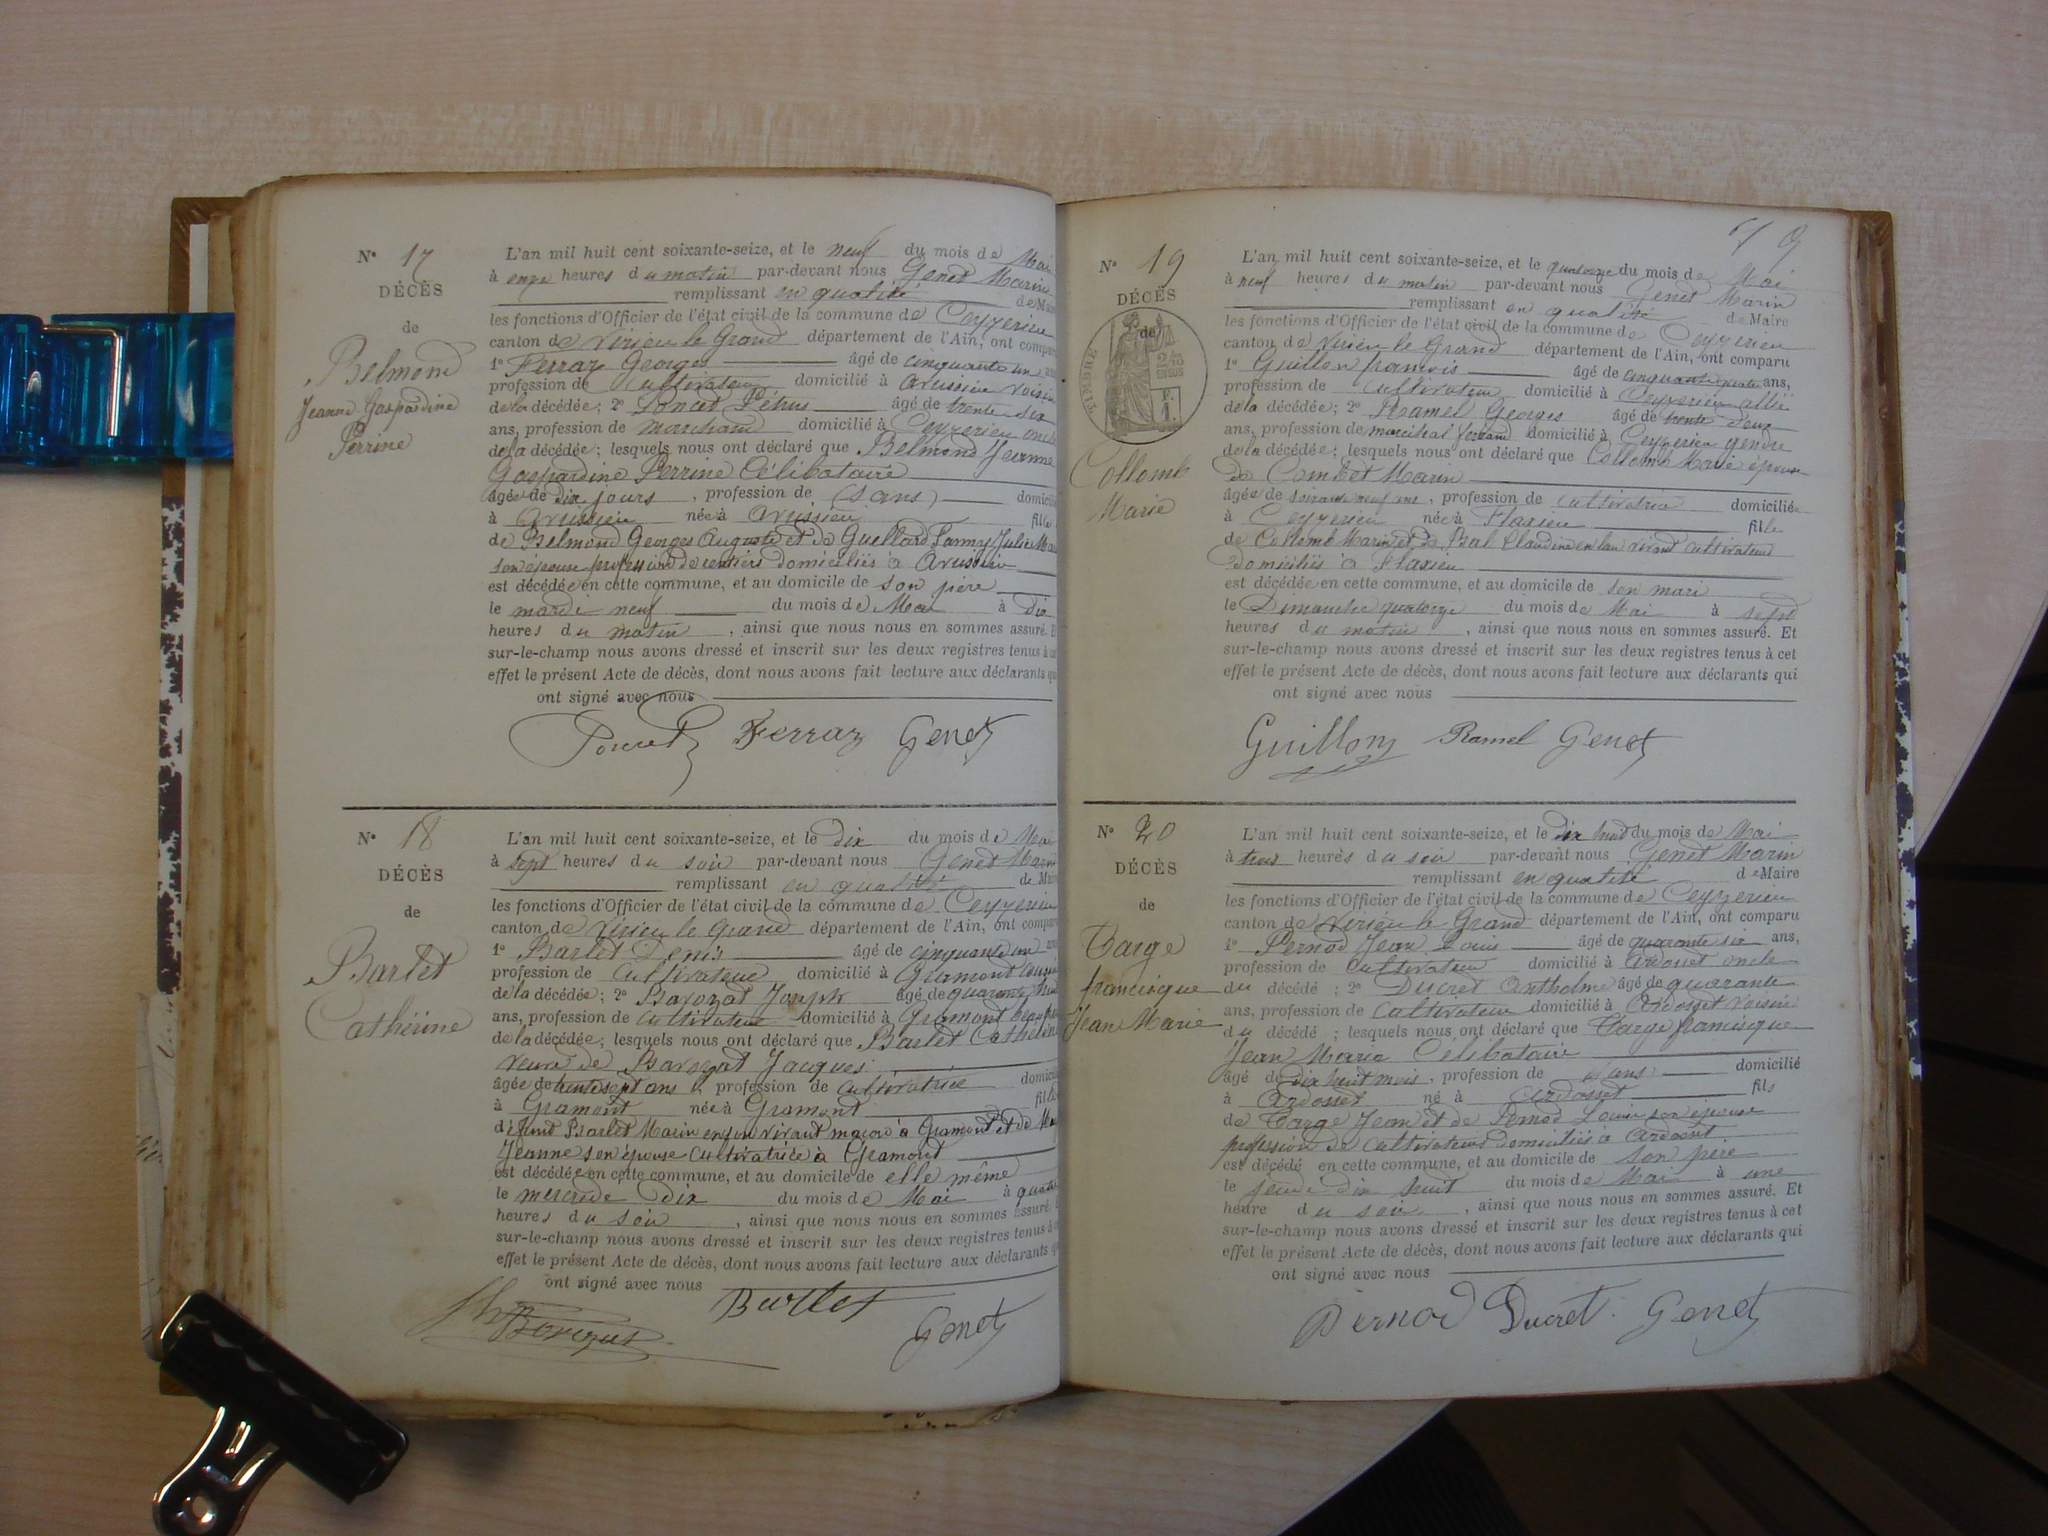 N° 17
DÉCÈS
de
Belmond
Jeanne Gaspardine
Perrine
L'an mil huit cent soixante-seize, et le neuf du mois de Mai
à onze heures du matin par-devant nous Genet Marin
remplissant en qualité de Maire
les fonctions d'Officier de l'état civil de la commune de Ceyzerieu
canton de Virieu le Grand département de l'Ain, ont comparu
1° Ferraz Georges âgé de cinquante un ans
profession de cultivateur domicilié à Avrissieu voisin
de la décédée; 2° Poncet âgé de trente six
ans, profession de marchand domicilié à Ceyzerieu oncle
de la décédée; lesquels nous ont déclaré que Belmond Jeanne
Gaspardine Perrine Célibataire
âgée de dix jours, profession de (sans) domicilié
à Avrissieu née à Avrissieu fille
de Belmond Georges Auguste et de Guellard Fanny Julie
son épouse profession de rentiers domiciliés à Avrissieu
est décédée en cette commune, et au domicile de son père
le mardi neuf du mois de Mai à dix
heures du matin, ainsi que nous nous en sommes assuré. Et
sur-le-champ nous avons dressé et inscrit sur les deux registres tenus à cet
effet le présent Acte de décès, dont nous avons fait lecture aux déclarants qui
ont signé avec nous
Poncet Ferraz Genet
N° 18
DÉCÈS
de
Barlet
Cathérine
L'an mil huit cent soixante-seize, et le dix du mois de Mai
à sept heures du soir par-devant nous Genet Marin
remplissant en qualité de Maire
les fonctions d'Officier de l'état civil de la commune de Ceyzerieu
canton de Virieu le Grand département de l'Ain, ont comparu
1° Barlet Denis âgé de cinquante un ans
profession de cultivateur domicilié à Gramont cousin
de la décédée; 2° Barozat Joseph âgé de quarante huit
ans, profession de cultivateur domicilié à Gramont
de la décédée; lesquels nous ont déclaré que Barlet Cathérine
veuve de Barozat Jacques
âgée de trente sept ans, profession de cultivatrice domicilié
à Gramont née à Gramont fille
de feu Barlet Marin en son vivant maçon à Gramont et de
Jeanne son épouse cultivatrice à Gramont
est décédée en cette commune, et au domicile de elle même
le mercredi dix du mois de Mai à quatre
heures du soir, ainsi que nous nous en sommes assuré.
sur-le-champ nous avons dressé et inscrit sur les deux registres tenus à cet
effet le présent Acte de décès, dont nous avons fait lecture aux déclarants qui
ont signé avec nous
Barlet
Genet
59
N° 19
DÉCÈS
de
TIMBRE
Collomb
Marie
L'an mil huit cent soixante-seize, et le quatorze du mois de Mai
à neuf heures du matin par-devant nous Genet Marin
remplissant en qualité de Maire
les fonctions d'Officier de l'état civil de la commune de Ceyzerieu
canton de Virieu le Grand département de l'Ain, ont comparu
1° Guillon françois âgé de cinquante quatre ans,
profession de cultivateur domicilié à Ceyzerieu allié
de la décédée; 2° Ramel Georges âgé de trente deux
ans, profession de marechal ferrand domicilié à Ceyzerieu gendre
de la décédée; lesquels nous ont déclaré que Collomb Marie épouse
de Combet Marin
âgée de soixante neuf ans, profession de cultivatrice domiciliée
à Ceyzerieu née à Flaxieu fille
de Collomb Marin et de Bal Claudine en leur vivant cultivateurs
domiciliés à Flaxieu
est décédée en cette commune, et au domicile de son mari
le Dimanche quatorze du mois de Mai à sept
heures du matin, ainsi que nous nous en sommes assuré. Et
sur-le-champ nous avons dressé et inscrit sur les deux registres tenus à cet
effet le présent Acte de décès, dont nous avons fait lecture aux déclarants qui
ont signé avec nous
Guillon Ramel Genet
N° 20
DÉCÈS
de
Targe
francisque
Jean Marie
L'an mil huit cent soixante-seize, et le dix huit du mois de Mai
à trois heures du soir par-devant nous Genet Marin
remplissant en qualité de Maire
les fonctions d'Officier de l'état civil de la commune de Ceyzerieu
canton de Virieu le Grand département de l'Ain, ont comparu
1° Pernod Jean Louis âgé de quarante six ans,
profession de cultivateur domicilié à Ardosset oncle
du décédé; 2° Ducret Anthelme âgé de quarante
ans, profession de cultivateur domicilié à Ardosset voisin
du décédé; lesquels nous ont déclaré que Targe francisque
Jean Marie Célibataire
âgé de dix huit mois, profession de (sans) domicilié
à Ardosset né à Ardosset fils
de Targe Jean et de Pernod Louise son épouse
profession de cultivateurs domiciliés à Ardosset
est décédé en cette commune, et au domicile de son père
le jeudi dix huit du mois de Mai à une
heure du soir, ainsi que nous nous en sommes assuré. Et
sur-le-champ nous avons dressé et inscrit sur les deux registres tenus à cet
effet le présent Acte de décès, dont nous avons fait lecture aux déclarants qui
ont signé avec nous
Pernod Ducret Genet